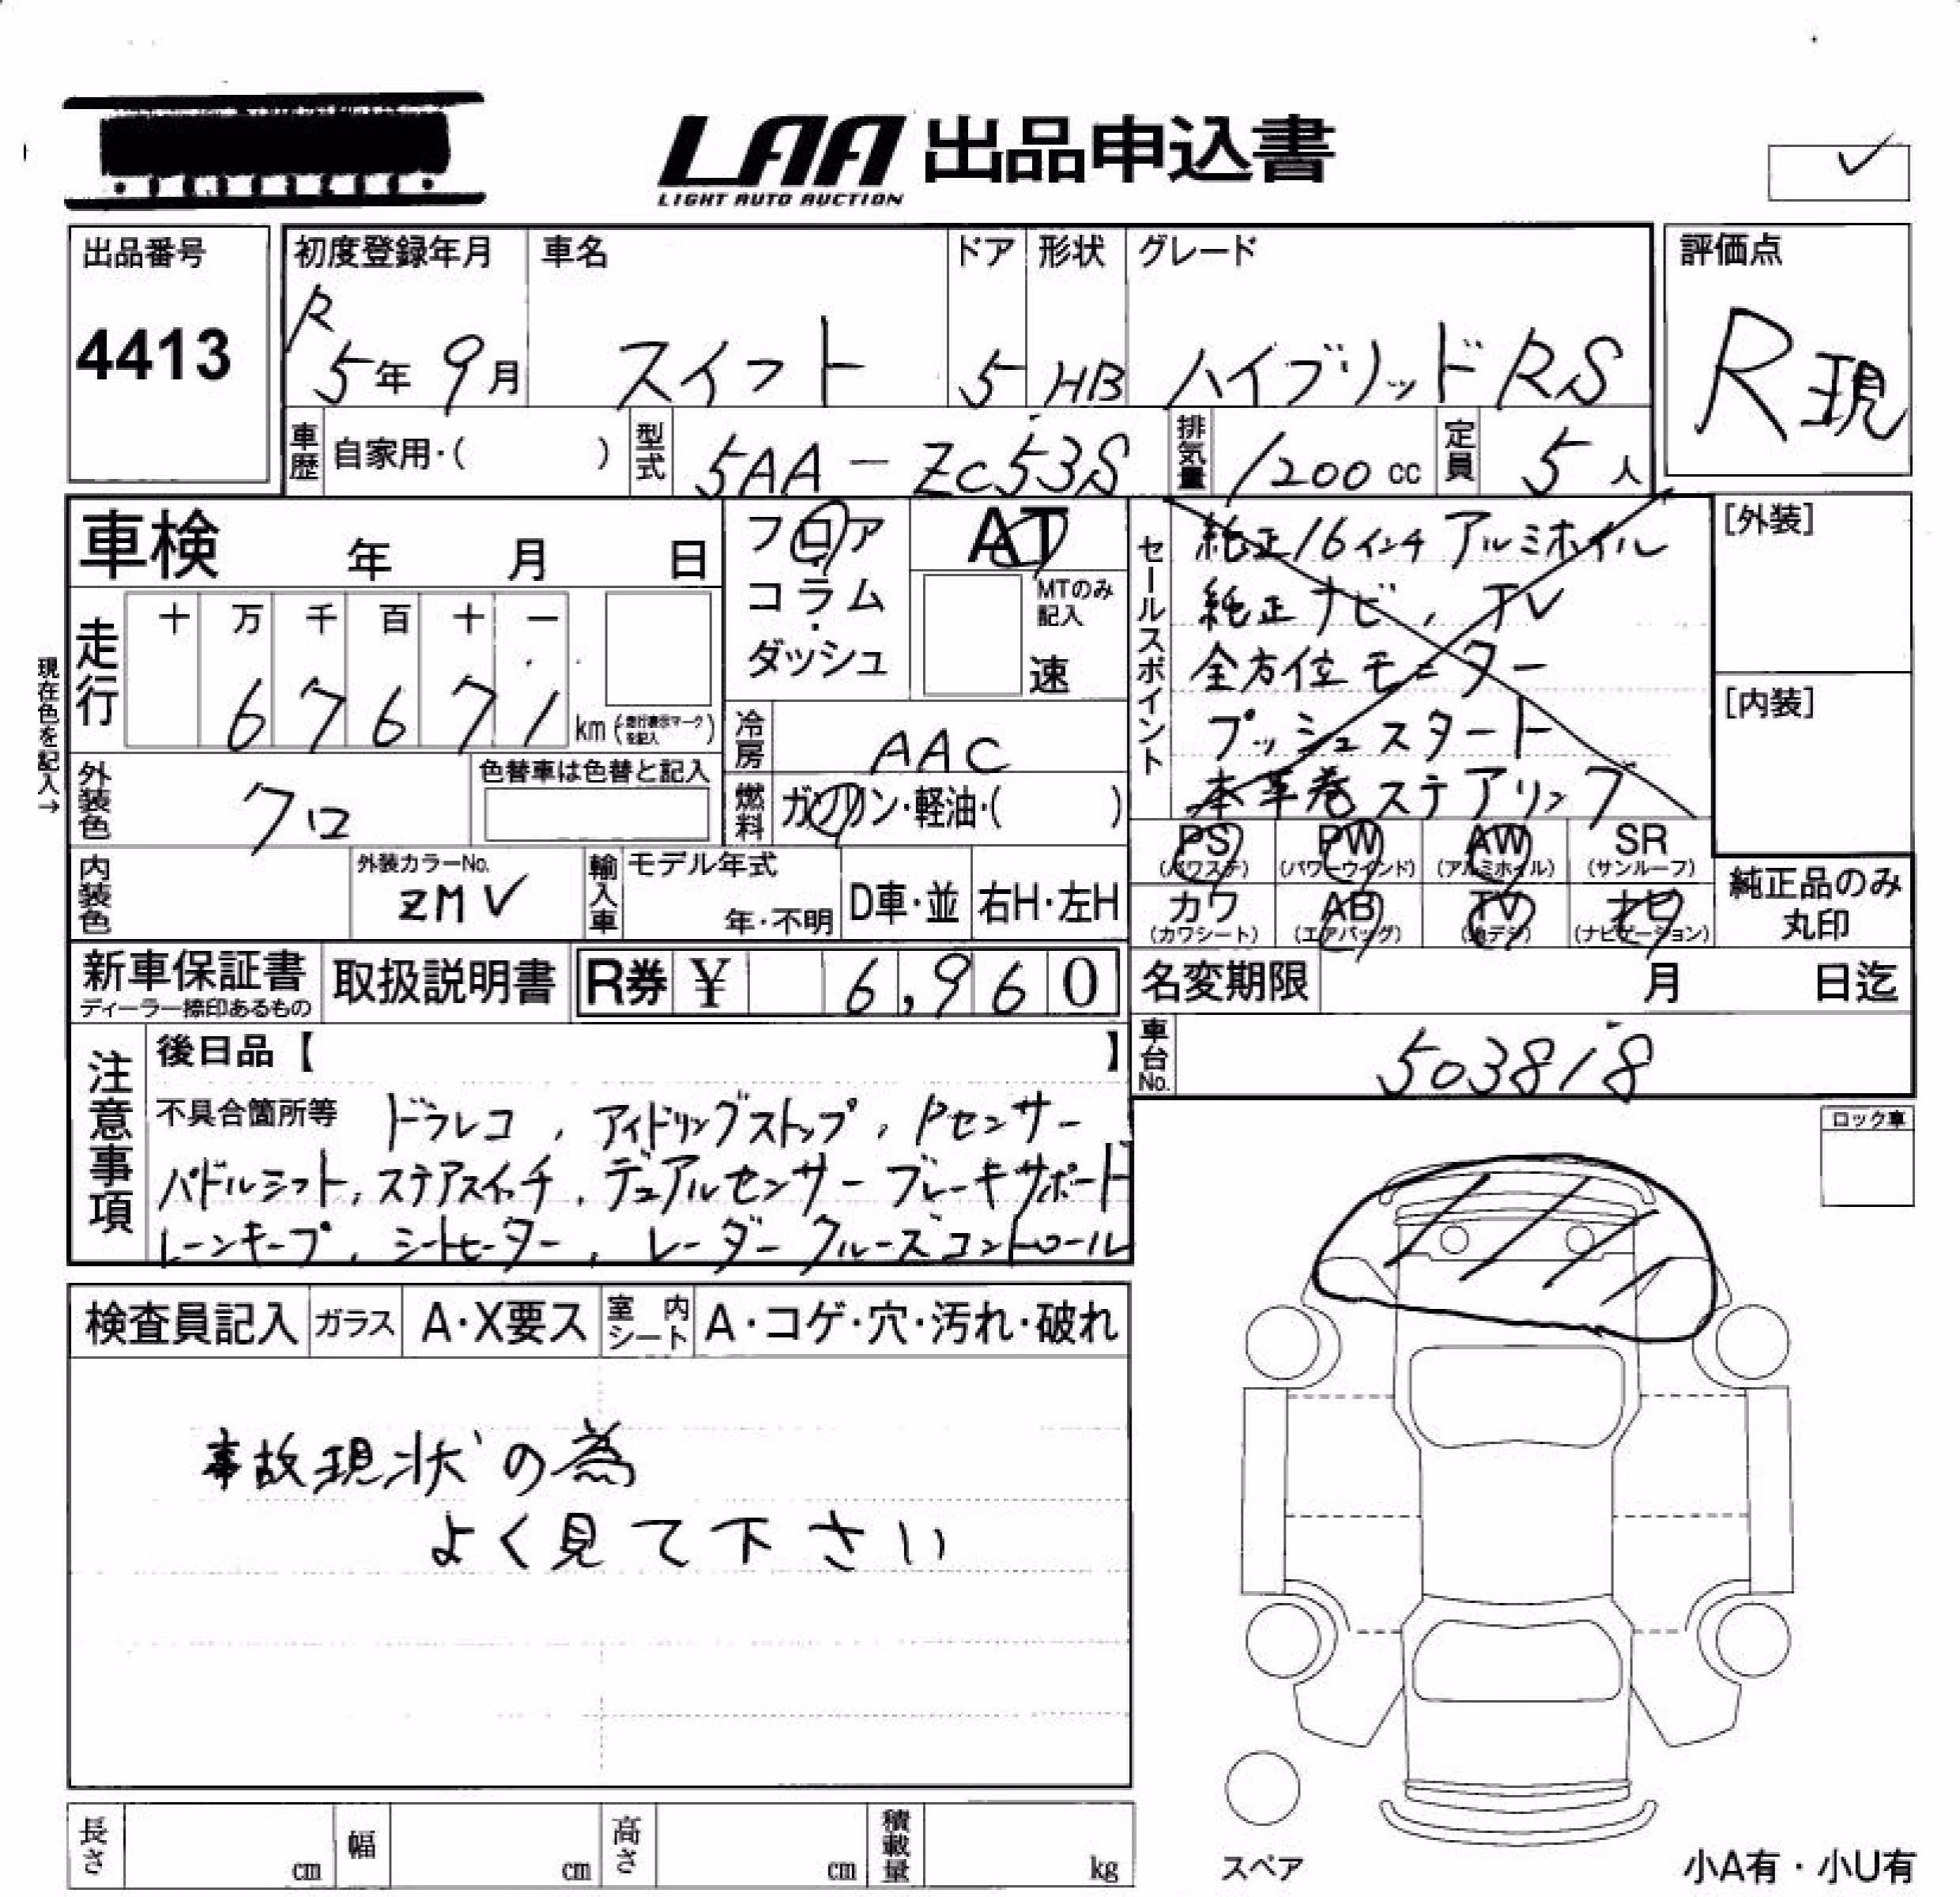 LAA 出品申込書
LIGHT AUTO AUCTION
出品番号
4413
初度登録年月
R
5年 9月
車名
スイフト
ドア
5
形状
HB
グレード
ハイブリッドRS
評価点
R現
車歴 自家用・( )
型式 5AA-ZC53S
排気量 1200 cc
定員 5 人
車検 年 月 日
走行
十 万 千 百 十 一
6 7 6 7 1 km (走行表示マークを記入)
現在色を記入→
外装色 クロ
色替車は色替と記入
内装色
外装カラーNo.
ZMV
フロア
・
コラム
・
ダッシュ
AT
MTのみ
記入
速
冷房 AAC
燃料 ガソリン・軽油・( )
輸入車
モデル年式
年・不明
D車・並
右H・左H
セールスポイント
純正16インチアルミホイル
純正ナビ, TV
全方位モニター
プッシュスタート
本革巻ステアリング
[外装]
[内装]
PS (パワステ)
PW (パワーウインド)
AW (アルミホイル)
SR (サンルーフ)
カワ (カワシート)
AB (エアバッグ)
TV (地デジ)
ナビ (ナビゲーション)
純正品のみ
丸印
新車保証書
ディーラー捺印あるもの
取扱説明書
R券 ¥ 6,960
名変期限 月 日迄
車台No. 503818
注意事項
後日品【 】
不具合箇所等 ドラレコ, アイドリングストップ, Pセンサー
パドルシフト, ステアスイッチ, デュアルセンサーブレーキサポート
レーンキープ, シートヒーター, レーダークルーズコントロール
ロック車
検査員記入 ガラス A・X要ス 室内シート A・コゲ・穴・汚れ・破れ
事故現状の為
よく見て下さい
長さ cm 幅 cm 高さ cm 積載量 kg
スペア
小A有・小U有